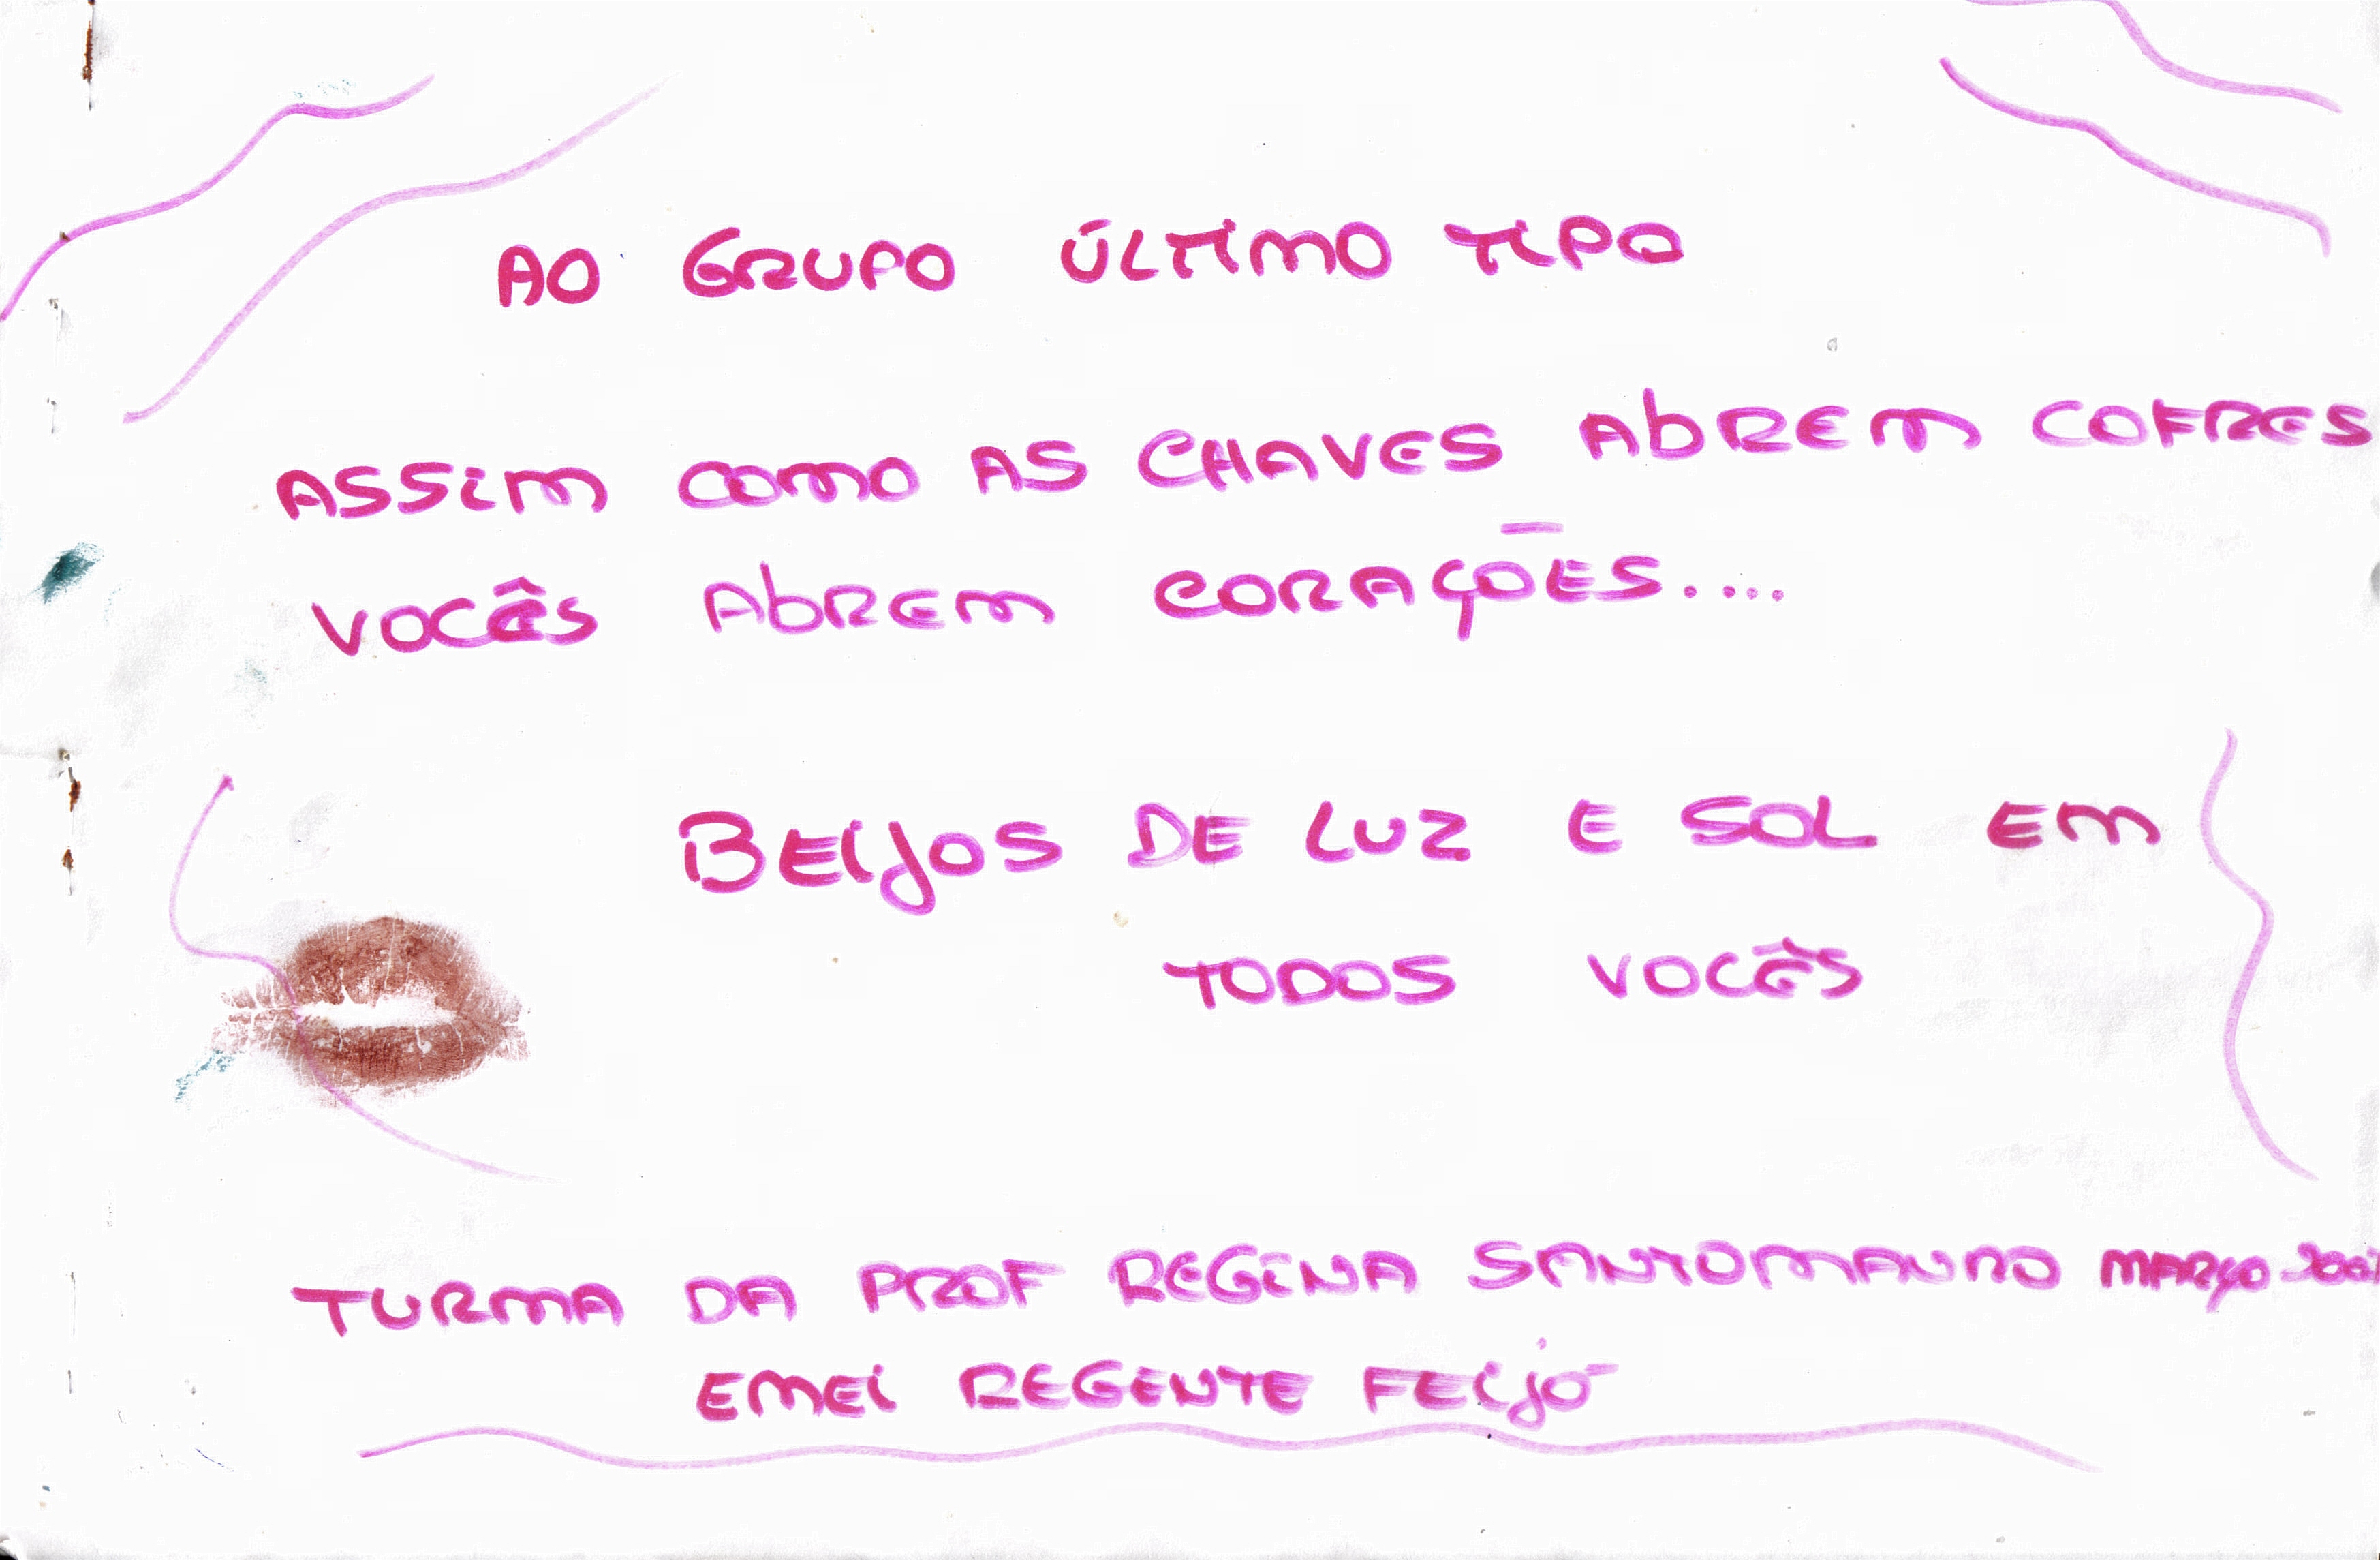 AO GRUPO ÚLTIMO TIPO
ASSIM COMO AS CHAVES ABREM COFRES
VOCÊS ABREM CORAÇÕES....
BEIJOS DE LUZ E SOL EM
TODOS VOCÊS
TURMA DA PROF REGINA SANTOMAURO MARÇO
EMEI REGENTE FEIJÓ